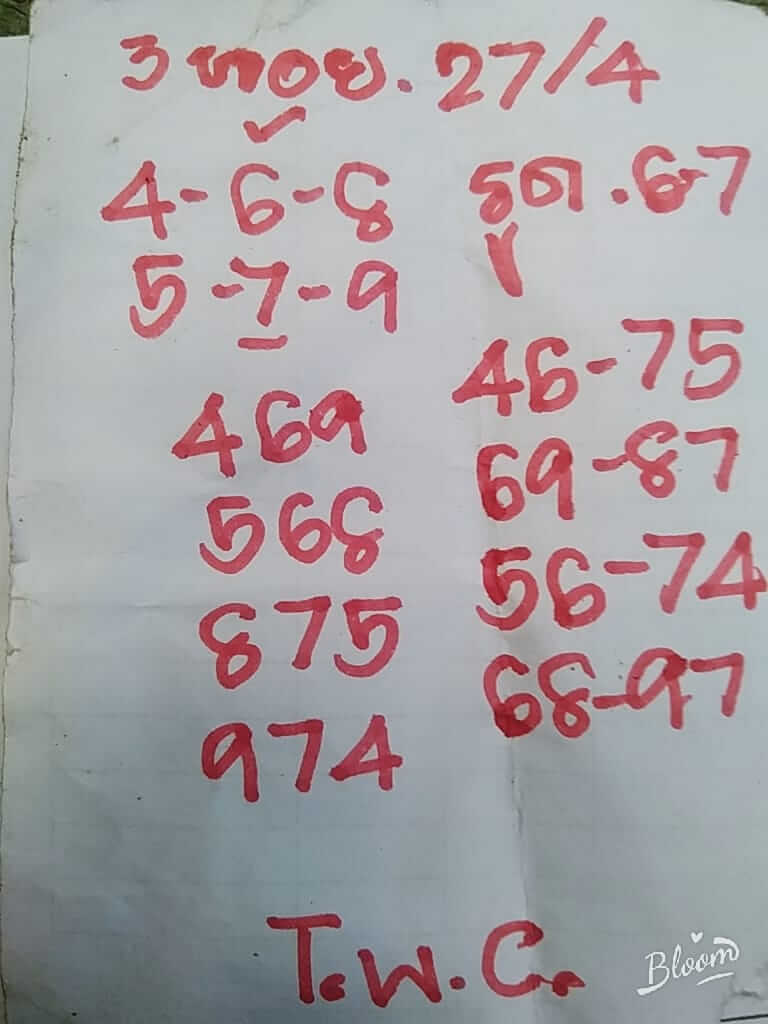 3 หวย. 27/4
4-6-8
5-7-9
469
568
875
974
รูด.6-7
46-75
69-87
56-74
68-97
T.W.C.
Bloom